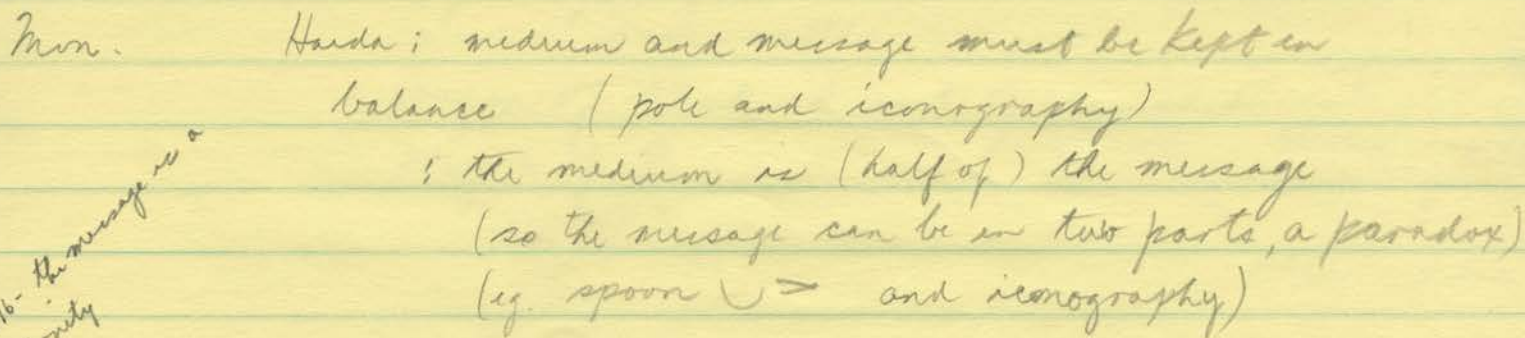 Mon. Haida ; medium and message must be kept in
balance (pole and iconography)
; the medium is (half of) the message
(so the message can be in two parts, a paradox)
(eg. spoon and iconography)
the message is a